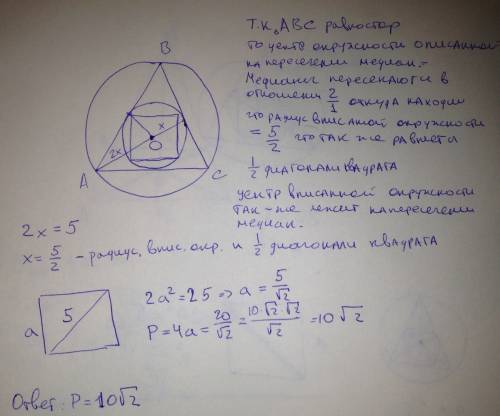 Т.к. △ABC равностор
то центр окружности описанной
на пересечении медиан.=
Медианы пересекаются в
отношении 2/1 откуда находим
что радиус вписанной окружности
= 5/2 что так же равняется
1/2 диагонали квадрата
центр вписанной окружности
так-же лежит на пересечении
медиан.
B
x
2x
O
A
C
2x = 5
x = 5/2 - радиус, впис. окр. и 1/2 диагонали квадрата
a
5
2a² = 25 => a = 5/√2
P = 4a = 20/√2 = 10·√2·√2/√2 = 10√2
Ответ: P = 10√2